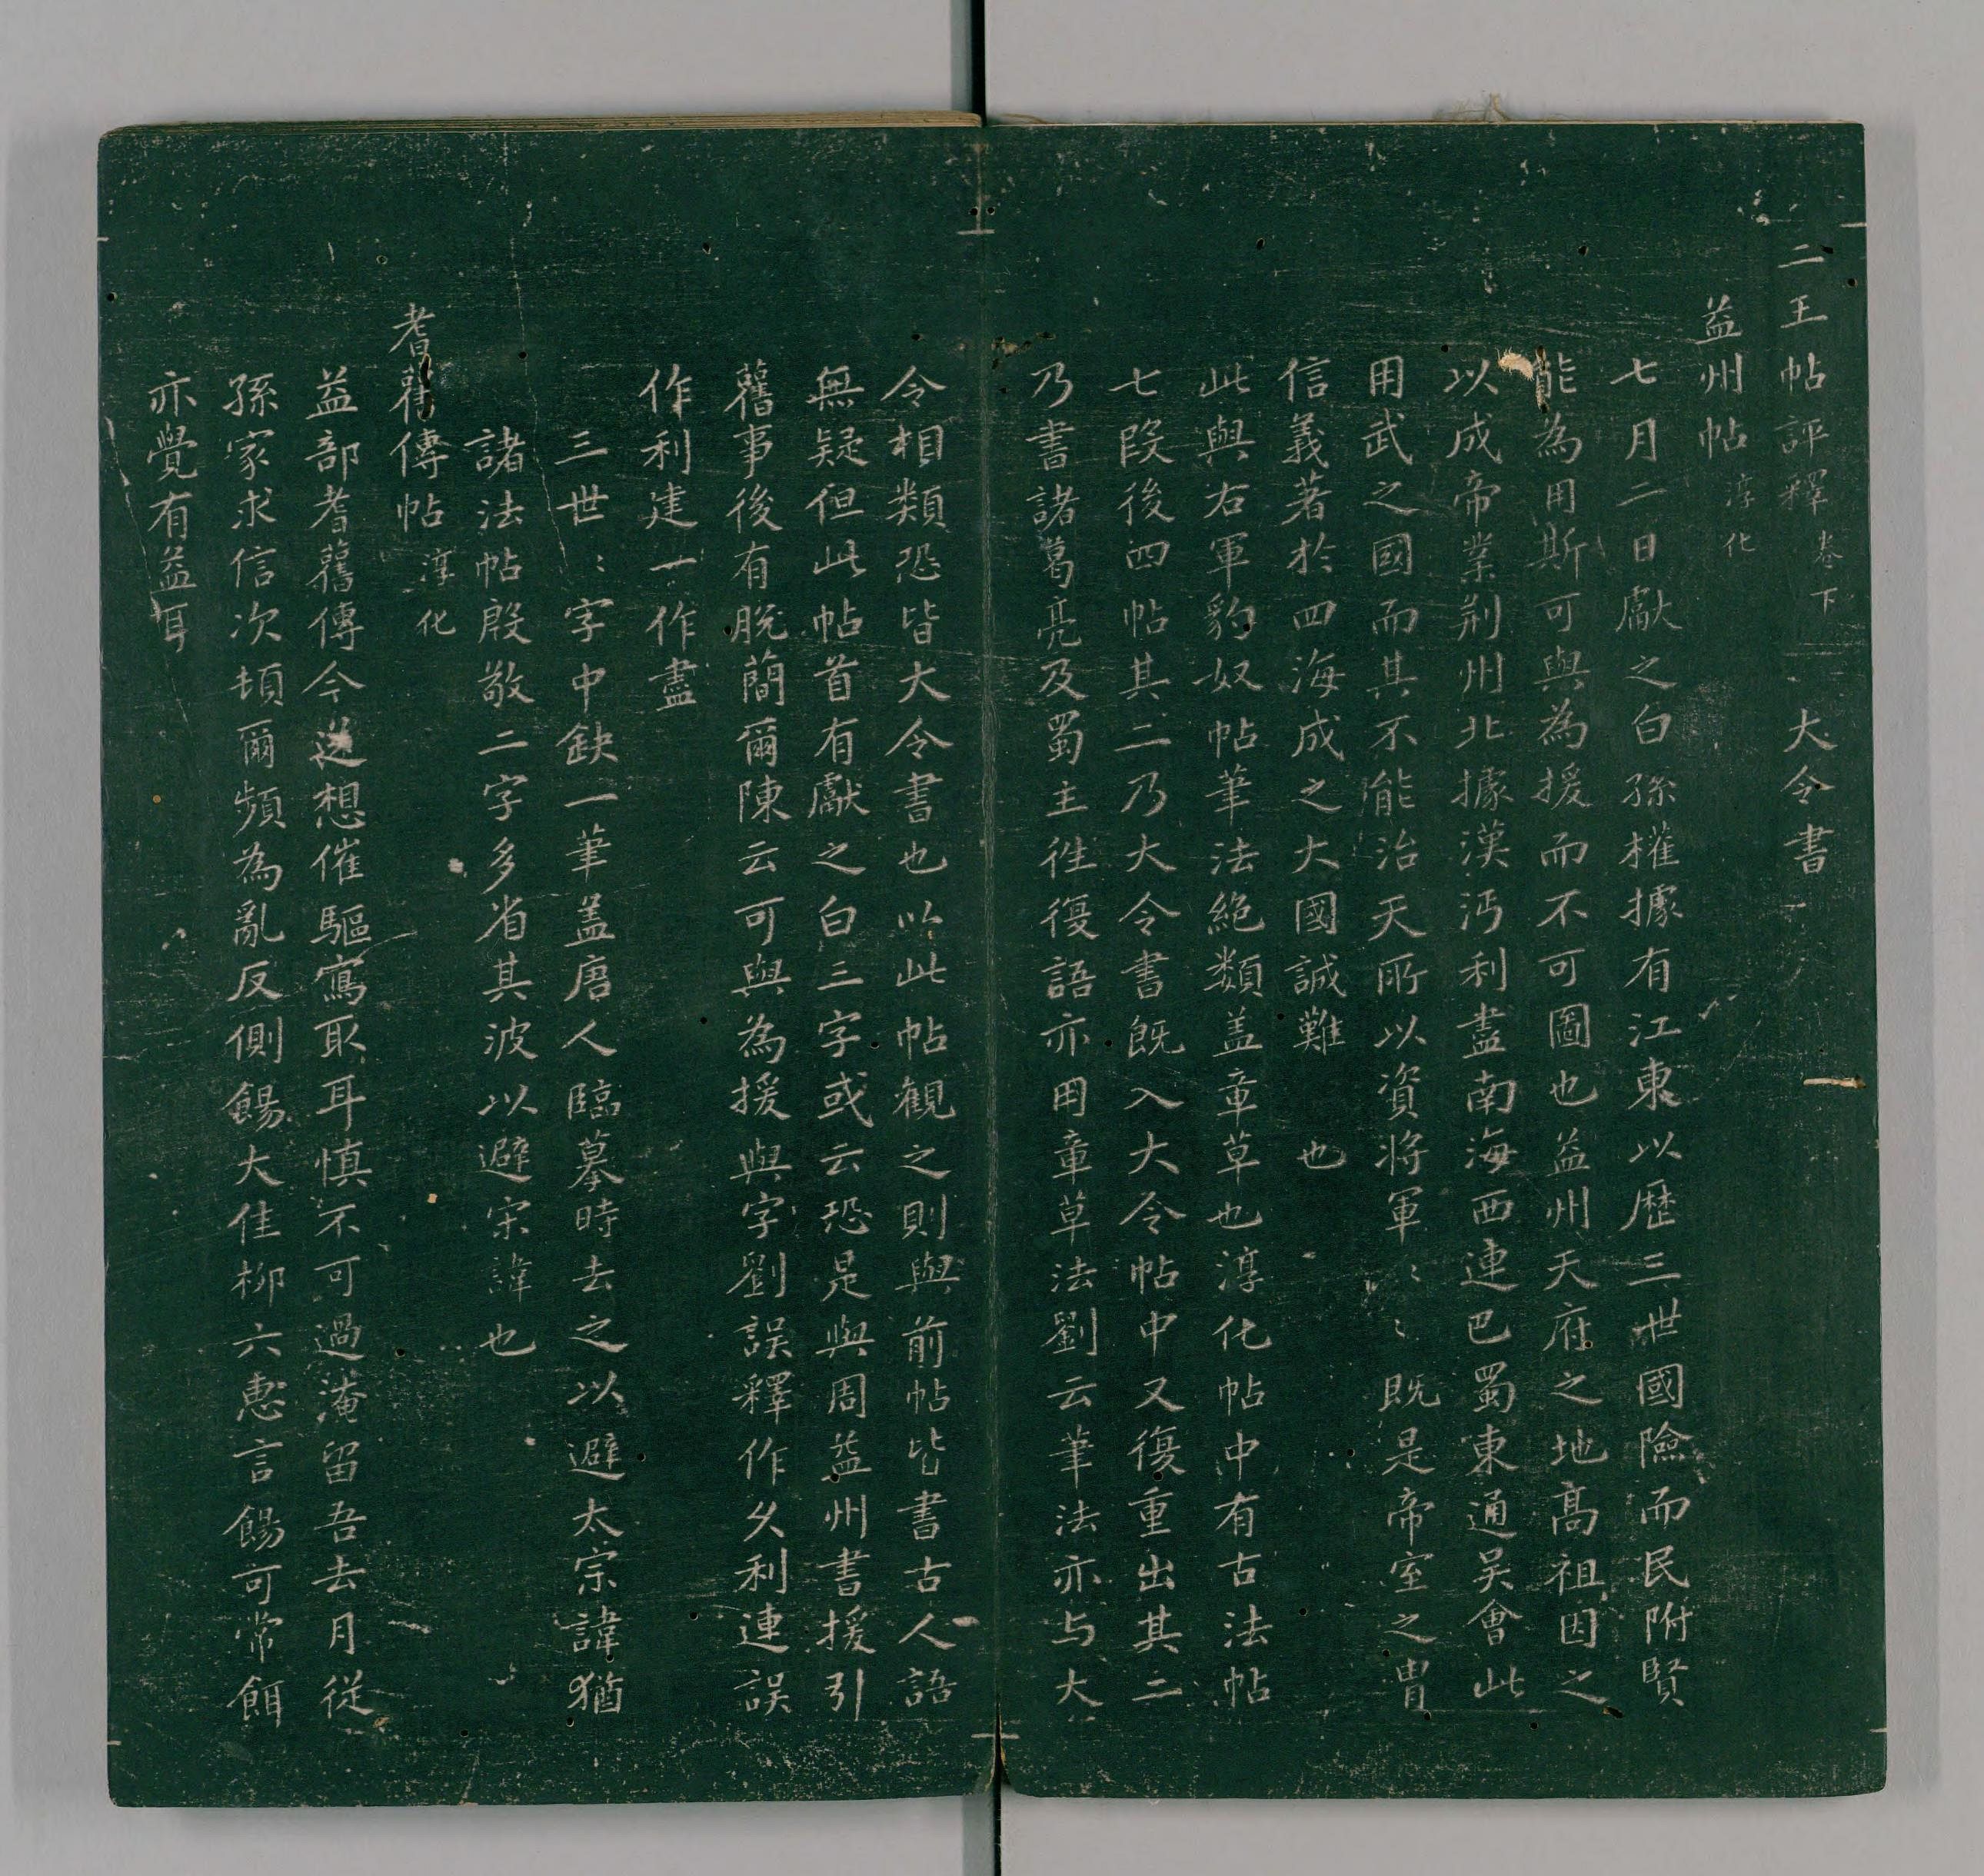 二王帖評釋 卷下 大令書
益州帖 淳化
七月二日獻之白孫權據有江東以歷三世國險而民附賢
能為用斯可與為援而不可圖也益州天府之地高祖因之
以成帝業荊州北據漢沔利盡南海西連巴蜀東通吴會此
用武之國而其不能治天所以資將軍〻〻既是帝室之冑
信義著於四海成之大國誠難 也
此與右軍豹奴帖筆法絶類盖章草也淳化帖中有古法帖
七段後四帖其二乃大令書既入大令帖中又復重出其二
乃書諸葛亮及蜀主徃復語亦用章草法劉云筆法亦与大
令相類恐皆大令書也以此帖観之則與前帖皆書古人語
無疑但此帖首有獻之白三字或云恐是與周益州書援引
舊事後有脱蕳爾陳云可與為援與字劉誤釋作久利連誤
作利建一作盡
三世〻字中缺一筆盖唐人臨摹時去之以避太宗諱猶
諸法帖殷敬二字多省其波以避宋諱也
耆舊傳帖 淳化
益部耆舊傳今送想催驅寫取耳慎不可過淹留吾去月從
孫家求信次頓爾頻為亂反側餳大佳柳六惠言餳可常餌
亦覺有益耳